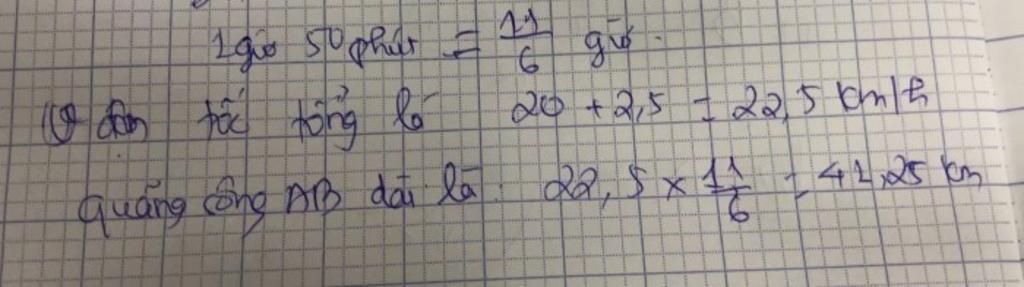 1 giờ 50 phút = 11/6 giờ.
Vận tốc tổng là 20 + 2,5 = 22,5 km/h
quãng sông AB dài là: 22,5 × 11/6 = 41,25 km